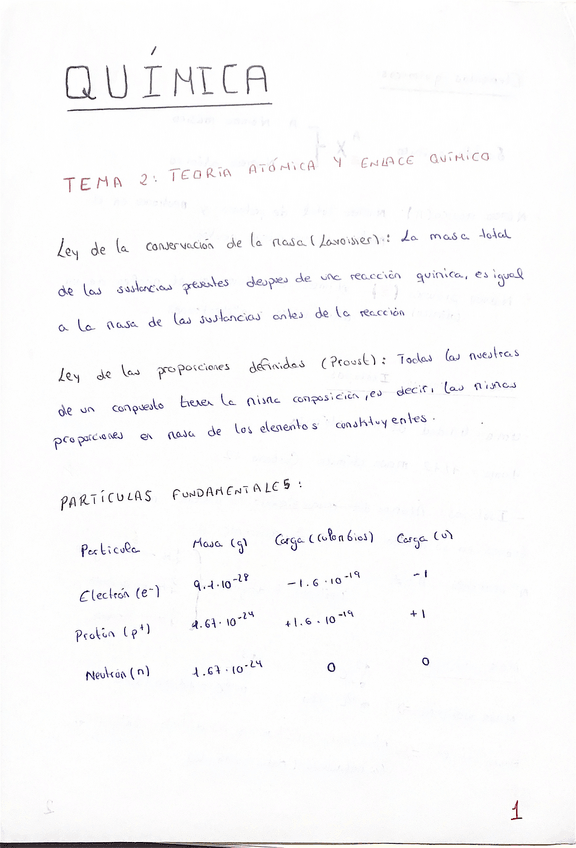 QUÍMICA
TEMA 2: TEORÍA ATÓMICA Y ENLACE QUÍMICO
Ley de la conservación de la masa (Lavoisier): La masa total
de las sustancias presentes despues de una reacción química, es igual
a la masa de las sustancias antes de la reacción
Ley de las proporciones definidas (Proust): Todas las muestras
de un compuesto tienen la misma composición, es decir, las mismas
proporciones en masa de los elementos constituyentes.
PARTÍCULAS FUNDAMENTALES:
Partícula Masa (g) Carga (culombios) Carga (u)
Electrón (e⁻) 9.1·10⁻²⁸ -1.6·10⁻¹⁹ -1
Protón (p⁺) 1.67·10⁻²⁴ +1.6·10⁻¹⁹ +1
Neutrón (n) 1.67·10⁻²⁴ 0 0
1